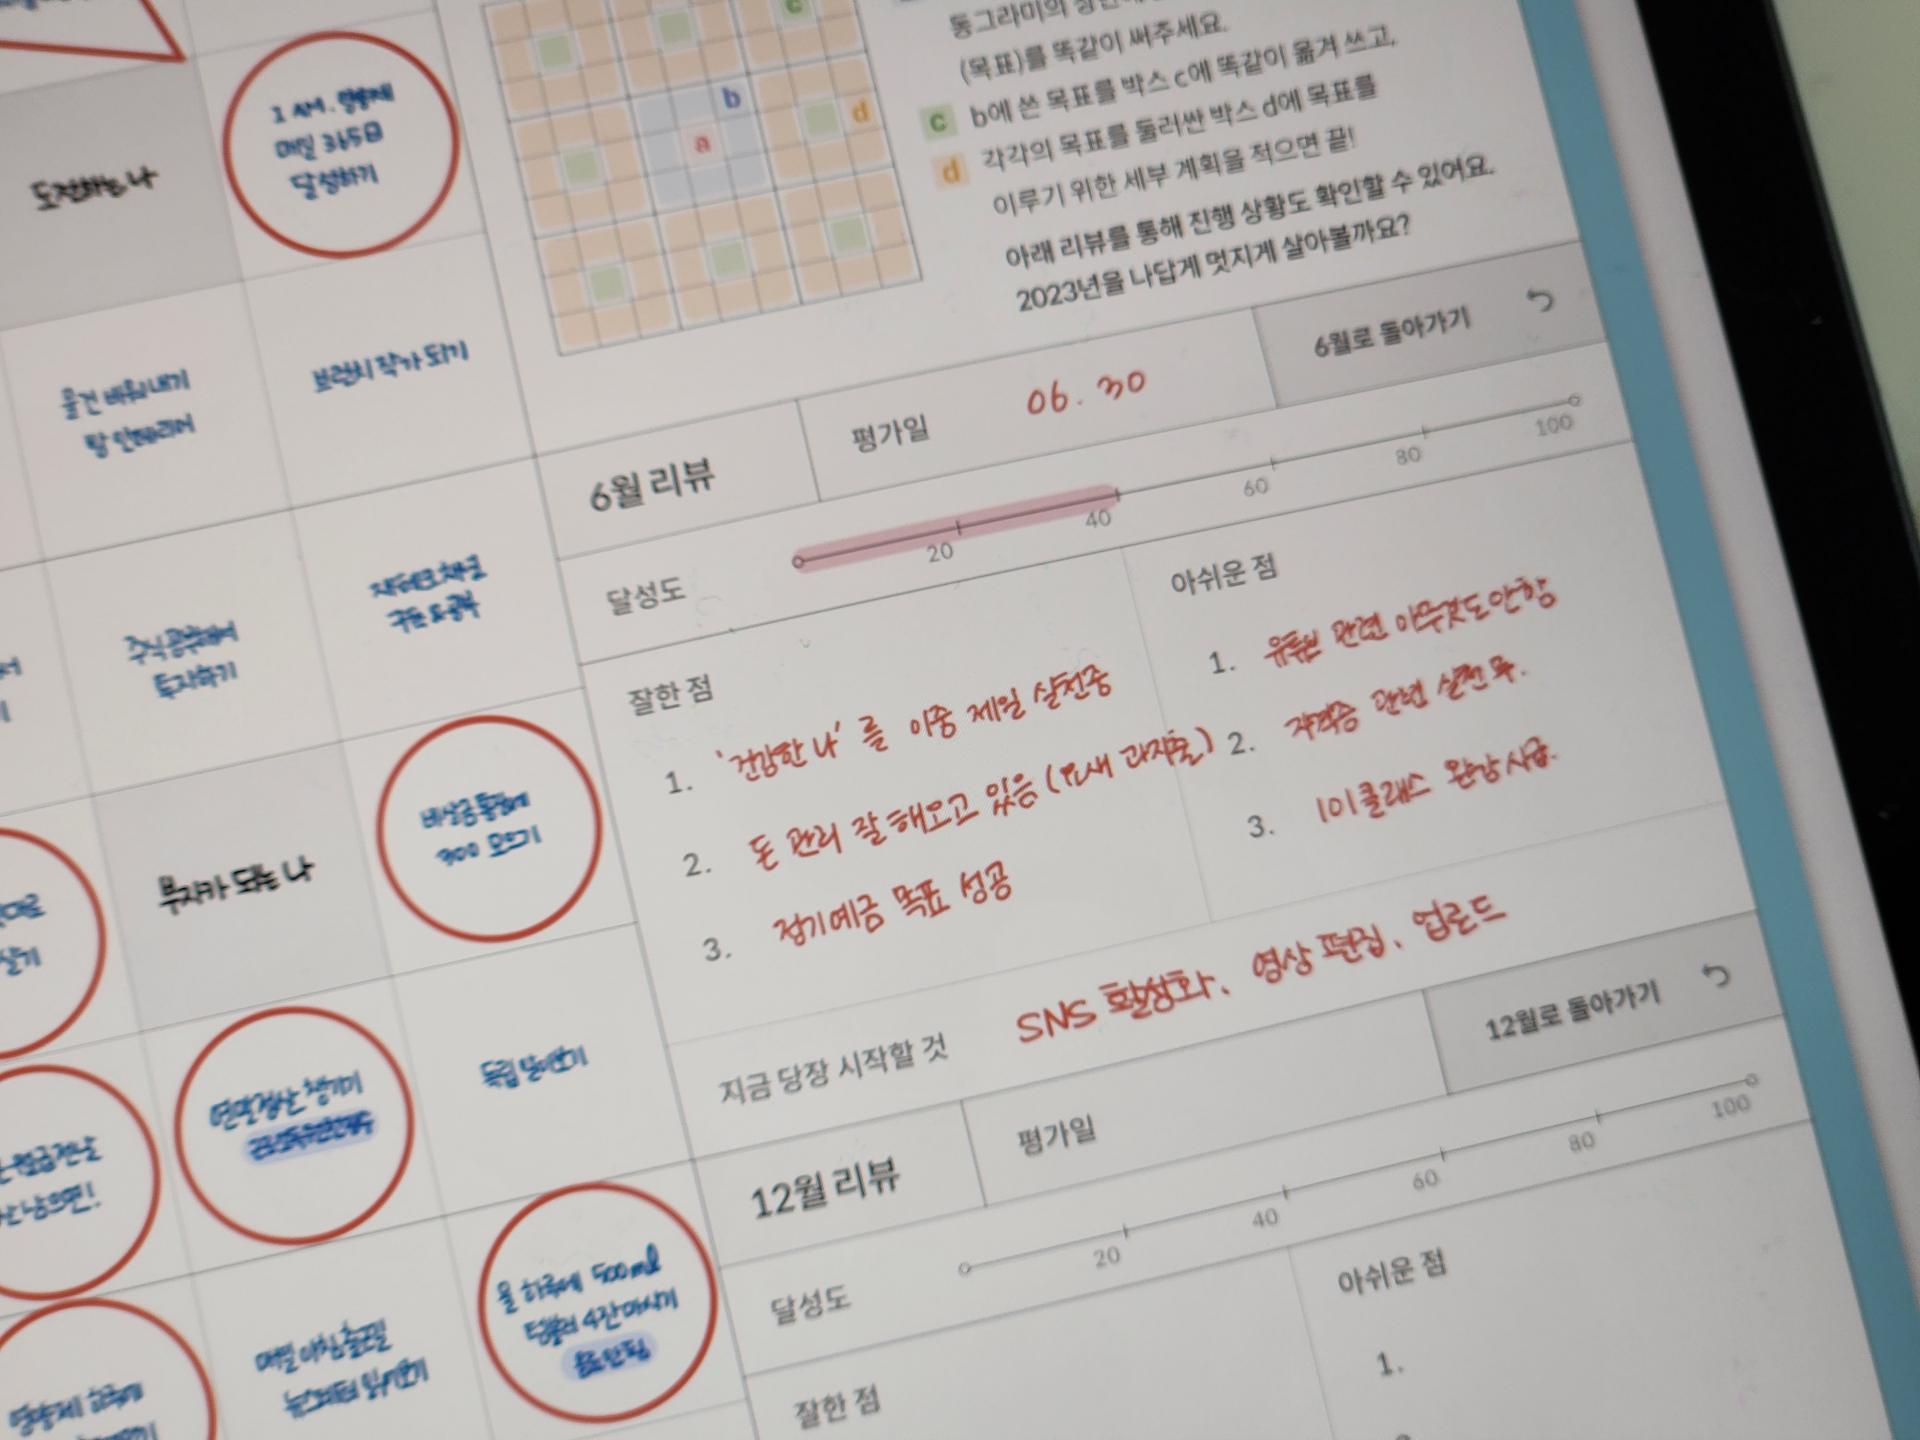 도전하는 나
1 AM. 영양제
매일 365일
달성하기
물건 비워내기
탈 인테리어
브런치 작가 되기
재테크 채널
구독 & 공부
주식 공부해서
투자하기
비상금 통장에
300 모으기
부자가 되는 나
연말정산 챙기기
독립 알아보기
월급전날
남으면!
물 하루에 500ml
텀블러 4잔 마시기
매일 아침 출근길
뉴스레터 읽기
a
b
c
d
동그라미의
(목표)를 똑같이 써주세요.
c b에 쓴 목표를 박스 c에 똑같이 옮겨 쓰고,
d 각각의 목표를 둘러싼 박스 d에 목표를
이루기 위한 세부 계획을 적으면 끝!
아래 리뷰를 통해 진행 상황도 확인할 수 있어요.
2023년을 나답게 멋지게 살아볼까요?
6월 리뷰
평가일
06. 30
6월로 돌아가기
달성도
20 40 60 80 100
잘한 점
1. '건강한 나' 를 이중 제일 실천중
2. 돈 관리 잘 해오고 있음 (요새 과지출)
3. 정기예금 목표 성공
아쉬운 점
1. 유튜브 관련 아무것도 안함
2. 자격증 관련 실천 무.
3. 101클래스 완강 시급.
지금 당장 시작할 것
SNS 활성화. 영상 편집. 업로드
12월 리뷰
평가일
12월로 돌아가기
달성도
20 40 60 80 100
잘한 점
아쉬운 점
1.